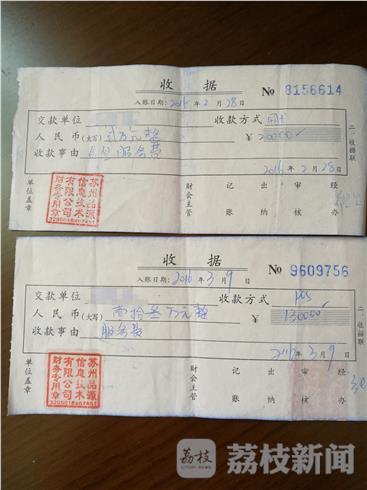 收据
入账日期: 2016 年 2 月 28 日
№ 8156614
交款单位
收款方式
人民币(大写) 贰万元整
¥ 20000
收款事由 服务费
2016 年 2 月 28 日
二、收据联
单位盖章
苏州品源信息技术有限公司财务专用章
财会主管
记账
出纳
审核
经办
收据
入账日期: 2016 年 3 月 9 日
№ 9609756
交款单位
收款方式 pos
人民币(大写) 壹拾叁万元整
¥ 130000
收款事由 服务费
2016 年 3 月 9 日
二、收据联
单位盖章
苏州品源信息技术有限公司财务专用章
财会主管
记账
出纳
审核
经办
荔枝 荔枝新闻